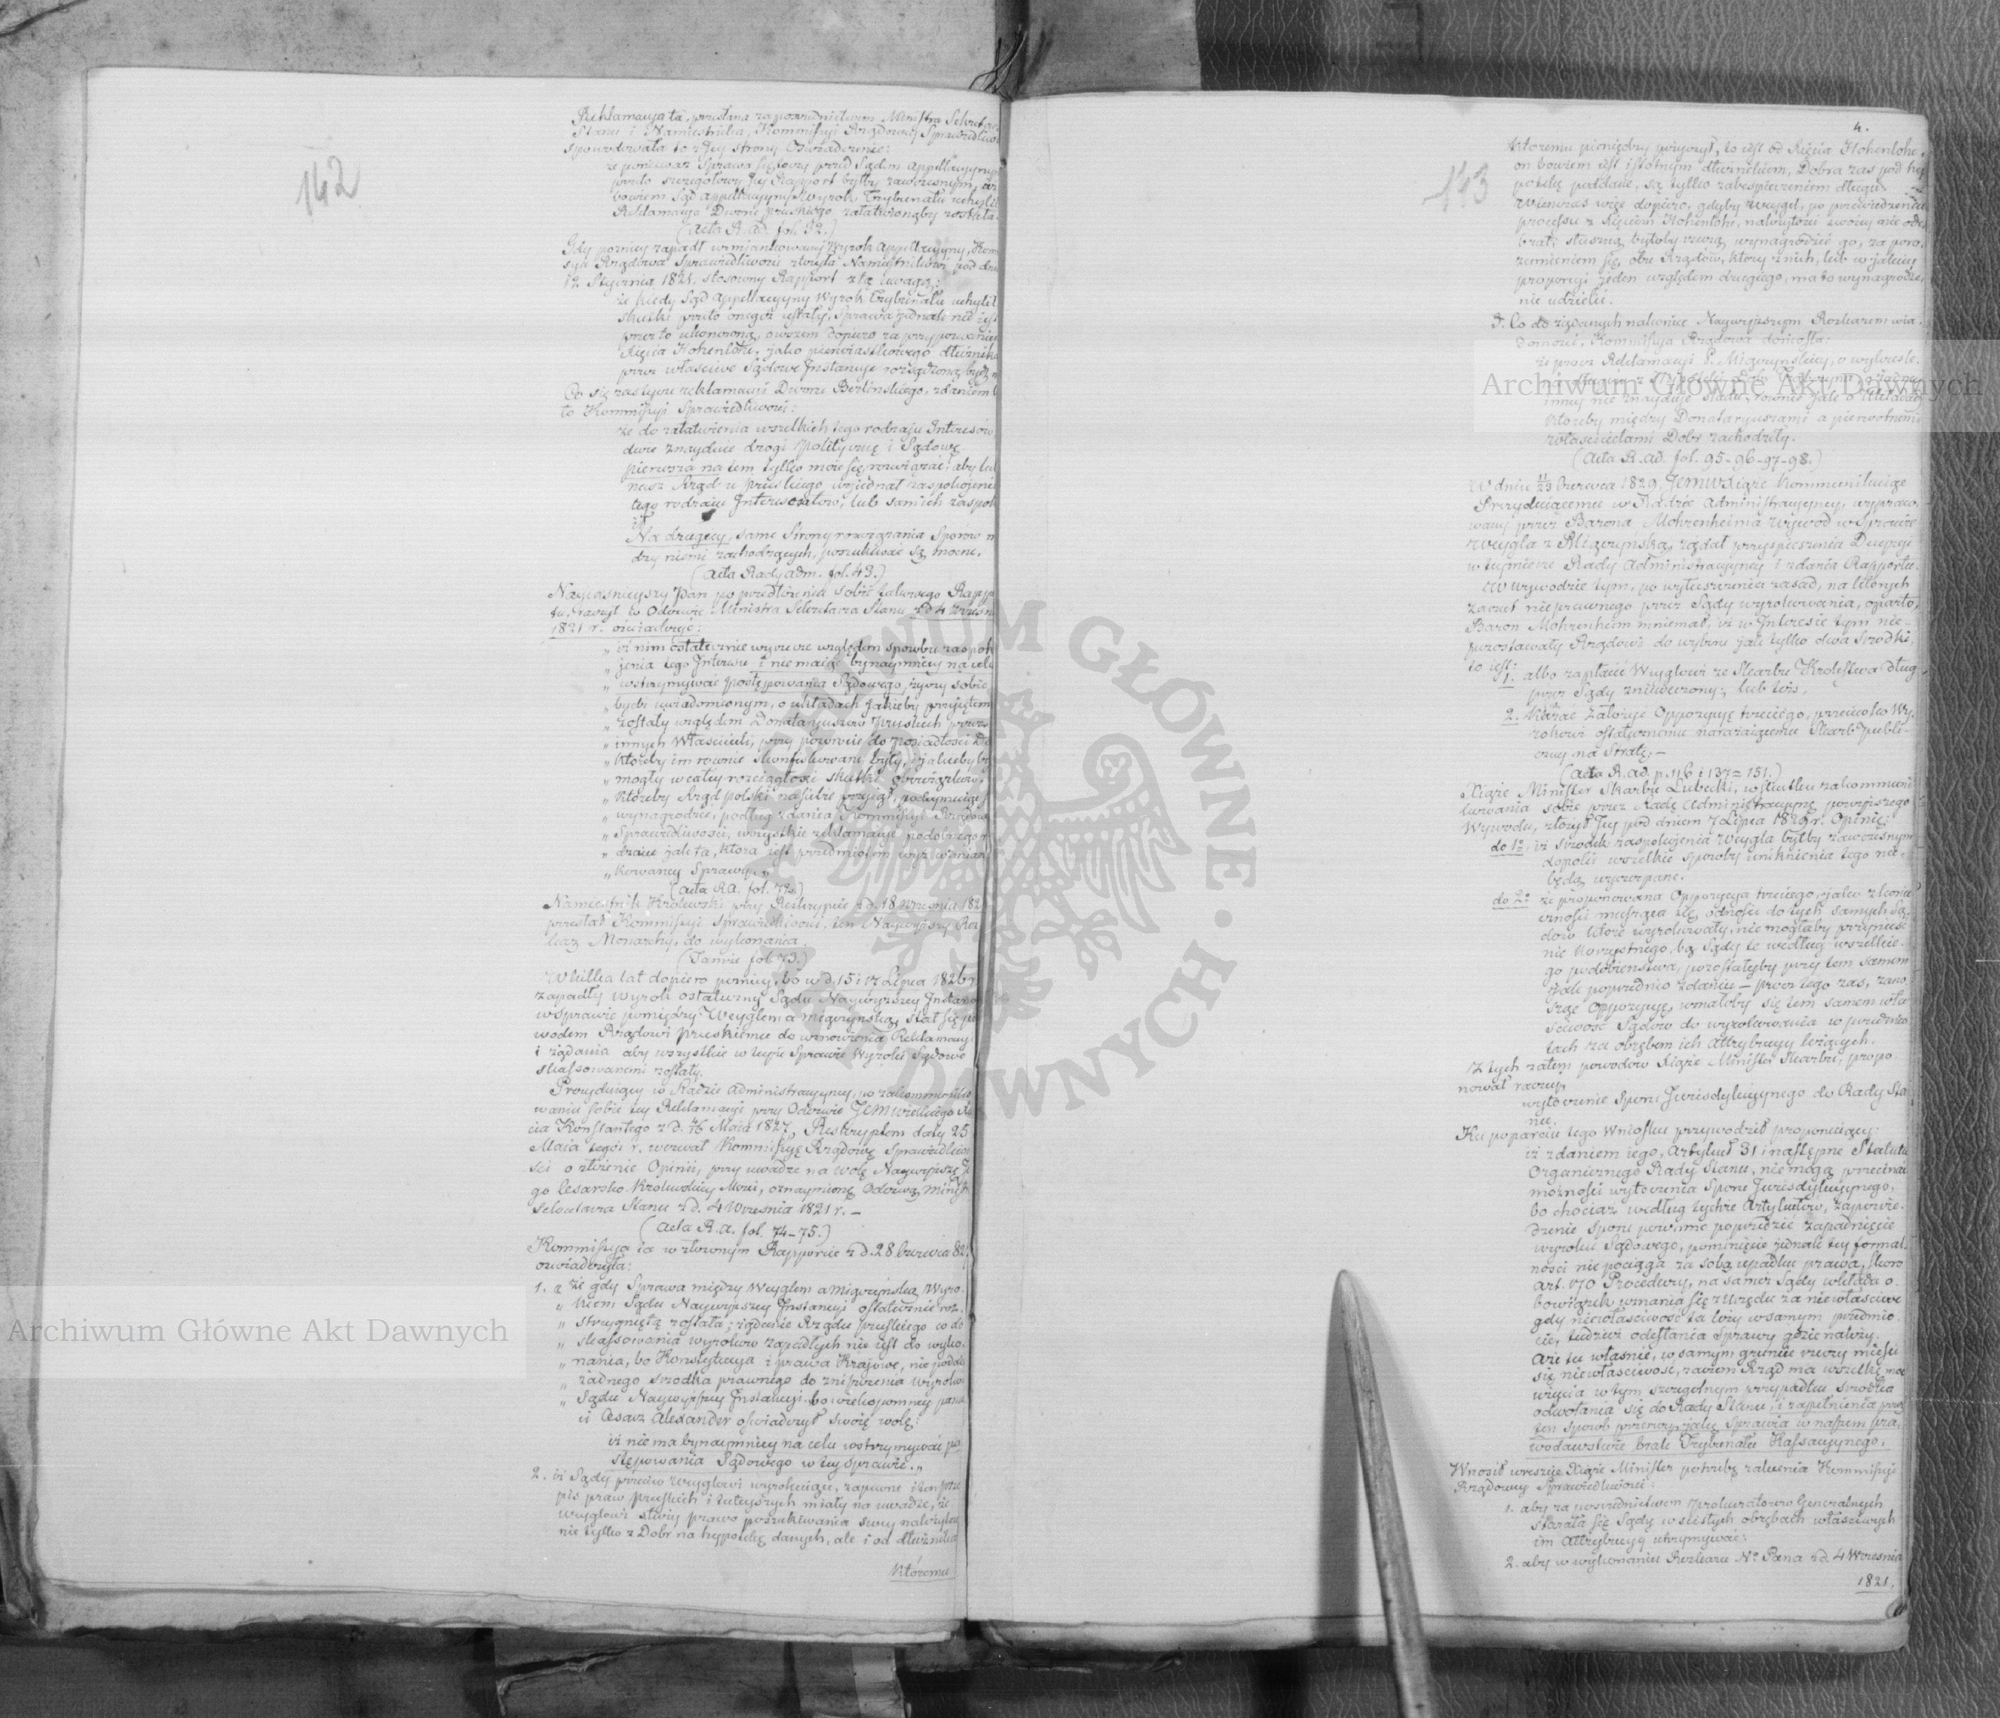 142
Reklamacya ta, przesłana za pośrednictwem Ministra Sekretarza
Stanu i Namiestnika, Kommissyi Rządowey Sprawiedliwości
spowodowała to z Jey strony Oświadczenie:
że ponieważ Sprawa się toczy przed Sądem Appellacyjnym
przeto szczegółowy Jey Rapport byłby zawczesnym,
bowiem Sąd Appellacyjny Wyrok Trybunału uchylił
Reklamacya Dworu Pruskiego załatwionąby została.
(Acta R. ad. fol. 32.)
Gdy poźniey zapadł wzmiankowany Wyrok Appellacyjny, Kom
sya Rządowa Sprawiedliwości złożyła Namiestnikowi pod dniem
12 Stycznia 1821. stosowny Rapport z tą uwagą:
że kiedy Sąd Appellacyjny Wyrok Trybunału uchylił
skutki przeto onegoż ustały, Sprawa jednak nie jest
przez to ukończoną, owszem dopiero za przypozwaniem
Xięcia Hohenlohe, jako pierwiastkowego dłużnika
przez właściwe Sądowe Instancye rozsądzoną będzie
Co się zaś tycze reklamacyi Dworu Berlińskiego, zdaniem
to Kommissyi Sprawiedliwości:
że do załatwienia wszelkich tego rodzaju Interesów
dwie znayduie drogi Polityczną i Sądową
pierwsza na tem tylko może się rozwiązać: aby lub
nasz Rząd u Pruskiego wyjednał zaspokojenie
tego rodzaiu Interessentów, lub sam ich zaspok
ił
Na drugiey, same Strony rozwiązania Sporów mię
dzy niemi zachodzących, poszukiwać są mocne.
(Acta Rady adm. fol. 43.)
Nayiaśnieyszy Pan po przedłożeniu sobie takowego Rappor
tu, raczył to Odezwie Ministra Sekretarza Stanu z d. 4 Wrześn
1821 r. oświadczyć:
„ iż nim ostatecznie wyrzecze względem sposobu zaspoko
„ jenia tego Interesu i nie maiąc bynaymniey na celu
„ wstrzymywać postępowania Sądowego, życzy sobie
„ bydź uwiadomionym, o układach jakieby przyiętem
„ zostały względem Donataryuszów Pruskich przez
„ innych Właścicieli, przy powrocie do posiadłości Dóbr
„ któreby im rownie skonfiskowani były, i jakieby by
„ mogły w całey rozciągłości skutki obowiązków,
„ któreby Rząd polski na siebie przyiął, podeymuiąc
„ wynagrodzić, podług zdania Kommissyi Rządowey
„ Sprawiedliwości, wszystkie reklamacye podobnego ro
„ dzaiu jak ta, która jest przedmiotem
„ kowaney Sprawy. „
(Acta R.A. fol. 72.)
Namiestnik Królewski przy Reskrypcie z d. 18 Września 182
przesłał Kommissyi Sprawiedliwości, ten Naywyższy Roz
kaz Monarchy, do wykonania.
(Tamże fol. 73.)
W kilka lat dopiero poźniey, bo w d. 15 i 17 Lipca 1826 r.
zapadły Wyrok ostateczny Sądu Naywyższey Instancyi
w sprawie pomiędzy Weyglem a Mięczyńską, stał się po
wodem Rządowi Pruskiemu do wznowienia Reklamacyi
i żądania aby wszystkie w teyże Sprawie Wyroki Sądowe
skassowanemi zostały.
Prezyduiący w Radzie Administracyjney, po zakommuniko
waniu sobie tey Reklamacyi przy Odezwie JCMWielkiego Xię
cia Konstantego z d. 16 Maia 1827, Reskryptem daty 25
Maia tegoż r. wezwał Kommissyę Rządową Sprawiedliwo
ści o złożenie Opinii, przy uwadze na wolę Naywyższą Je
go Cesarsko Królewskiey Mości, oznaymioną Odezwą Ministra
Sekretarza Stanu z d. 4 Września 1821 r. —
(Acta R. a. fol. 74–75.)
Kommissya ta w złożonym Rapporcie z d. 28 Czerwca 82
oświadczyła:
1. „ że gdy Sprawa między Weyglem a Mięczyńską, Wyro
„ kiem Sądu Naywyższey Instancyi ostatecznie roz-
„ strzygniętą została; żądanie Rządu Pruskiego co do
„ skassowania wyroków zapadłych nie jest do wyko
„ nania, bo Konstytucya i prawa Krajowe, nie podały
„ żadnego środka prawnego do zniszczenia wyroków
„ Sądu Naywyższey Instancyi. bo wiekopomney pam
iż Cesarz Alexander oświadczył swoię wolę:
iż nie ma bynaymniey na celu wstrzymywać po
stępowania Sądowego w tey sprawie. „
2. iż Sądy przeciw Weyglowi wyrokuiąc, zapewne i ten prze
pis praw Pruskich i tuteyszych miały na uwadze, iż
Weyglowi służy prawo poszukiwania swey należytości
nie tylko z Dobr na hypotekę danych, ale i od dłużnika
któremu
4.
143
któremu pieniędzy pożyczył, to iest od Xięcia Hohenlohe,
on bowiem iest istotnym dłużnikiem, Dobra zaś pod hy
potekę poddane, są tylko zabespieczeniem długu.
Wówczas więc dopiero, gdyby Weygel, po przewiedzeniu
processu z Xięciem Hohenlohe, należytości swoiey nie ode
brał; słuszną byłoby rzeczą wynagrodzić go, za poro
zumieniem się, obu Rządów, który z nich, lub w jakiey
proporcyi jeden względem drugiego, ma to wynagrodze
nie udzielić.
3. Co do żądanych nakoniec Naywyższym Rozkazem wia
domości, Kommissya Rządowa doniosła:
że prócz Reklamacyi P. Mięczyńskiey, o wykreśle
innej nie znayduie śladu, równie jak o układach
któreby między Donataryuszami a pierwotnemi
właścicielami Dobr zachodziły.
(Acta R. ad. fol. 95–96–97–98.)
W dniu 11/23 Czerwca 1829. JCMWXiąże kommunikuiąc
Prezyduiącemu w Radzie Administracyjney, wypraco
wany przez Barona Mohrenheima Wywód w Sprawie
Weygla z Mięczyńską, żądał przyspieszenia Decyzyi
w teymierze Rady Administracyjney i zdania Rapportu.
W Wywodzie tym, po wyłuszczeniu zasad, na których
zarzut nieprawnego przez Sądy wyrokowania, oparto,
Baron Mohrenheim mniemał, iż w Interesie tym nie-
pozostawały Rządowi do wyboru jak tylko dwa Srodki.
to iest:
1. albo zapłacić Weyglowi ze Skarbu Królestwa dług
przez Sądy zniweczony; lub też,
2. kazać założyć Oppozycyę trzeciego, przeciwko Wy-
rokowi ostatecznemu narażaiącemu Skarb publi-
czny na Stratę. —
(Acta R. ad. p. 116 i 137–151.)
Xiąże Minister Skarbu Lubecki, w skutku zakommuni
kowania sobie przez Radę Administracyjną powyższego
Wywodu, złożył Jey pod dniem 7 Lipca 1829 r. Opinię:
do 1º iż środek zaspokojenia Weygla byłby zawczesnym
dopóki wszelkie sposoby uniknienia tego nie-
będą wyczerpane.
do 2º że proponowana Oppozycya trzeciego, jako z koniec
czności musząca się, odnosić do tych samych Są-
dów które wyrokowały, nie mogłaby przynieść
nic korzystnego, bo Sądy te według wszelkie-
go podobieństwa, pozostałyby przy tem samem
jak poprzednio zdaniu — prócz tego zaś, zano
sząc Oppozycyę, uznałoby się tem samem wła
ściwość Sądów do wyrokowania w przedmio
tach za obrębem ich Attrybucyi leżących.
Z tych zatem powodów Xiąże Minister Skarbu, propo
nował raczey,
wytoczenie Sporu Jurisdykcyjnego do Rady Sta
nu.
Ku poparciu tego Wniosku przywodził proponuiący:
iż zdaniem jego, Artykuł 31 i następne Statutu
Organicznego Rady Stanu, nie mogą przecinać
możności wytoczenia Sporu Jurisdykcyjnego,
bo chociaż według tychże Artykułów, zapowie-
dzenie sporu powinno poprzedzić zapadnięcie
wyroku Sądowego, pominięcie jednak tey formal-
ności nie pociąga za sobą upadku prawa, skoro
art. 170 Procedury, na same Sądy wkłada o-
bowiązek uznania się z Urzędu za niewłaściwe
gdy niewłaściwość ta leży w samym przedmio-
cie, tudzież odesłania Sprawy gdzie należy.
Aże tu właśnie, w samym gruncie rzeczy mieści
się niewłaściwość, zaczem Rząd ma wszelką moc
użycia w tym szczególnym przypadku środka
odwołania się do Rady Stanu, i zapełnienia przez
ten sposób przerwy jaką sprawia w naszem Pra-
wodawstwie brak Trybunału Kassacyjnego.
Wnosił wreszcie Xiąże Minister potrzebę zalecenia Kommissyi
Rządowey Sprawiedliwości:
1. aby za pośrednictwem Prokuratorów Generalnych
starała się Sądy w ścisłych obrębach właściwych
im Attrybucyi utrzymywać:
2. aby w wykonaniu Rozkazu Nº Pana z d. 4 Września
1821.
Archiwum Główne Akt Dawnych
Archiwum Główne Akt Dawnych
ARCHIWUM GŁÓWNE AKT DAWNYCH